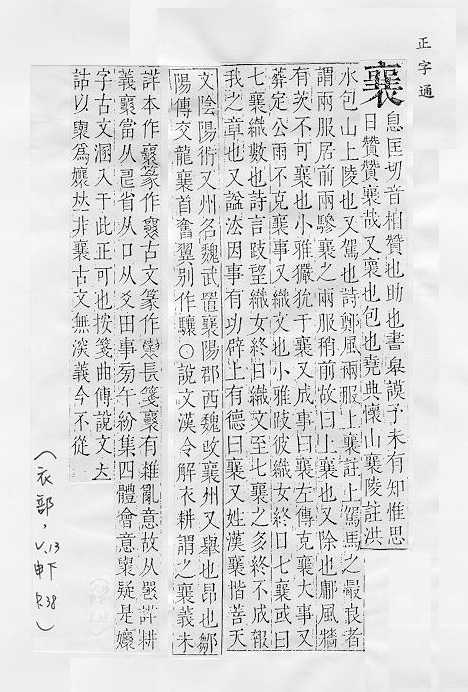 正字通
襄
息匡切音相贊也助也書皋謨予未有知惟思
日贊贊襄哉又褱也包也堯典懷山襄陵註洪
水包山上陵也又駕也詩鄭風兩服上襄註上駕馬之最良者
謂兩服居前兩驂襄之兩服稍前故曰上襄也又除也鄘風牆
有茨不可襄也小雅玁狁于襄又成事曰襄左傳克襄大事又
葬定公雨不克襄事又織文也小雅跂彼織女終日七襄或曰
七襄織數也詩言跂望織女終日織文至七襄之多終不成報
我之章也又謚法因事有功辟上有德曰襄又姓漢襄楷善天
文陰陽術又州名魏武置襄陽郡西魏改襄州又舉也昂也鄒
陽傳交龍襄首奮翼別作驤○說文漢令解衣耕謂之襄義未
詳本作襄篆作古文篆作長箋襄有雜亂意故从詳耕
義襄當从省从口从爻田事旁午紛集四體會意褱疑是孃
字古文溷入干此正可也按箋曲傳說文大
詁以褱為孃𠀤非襄古文無淡義今不從
（衣部，v.13
申下
P.38）